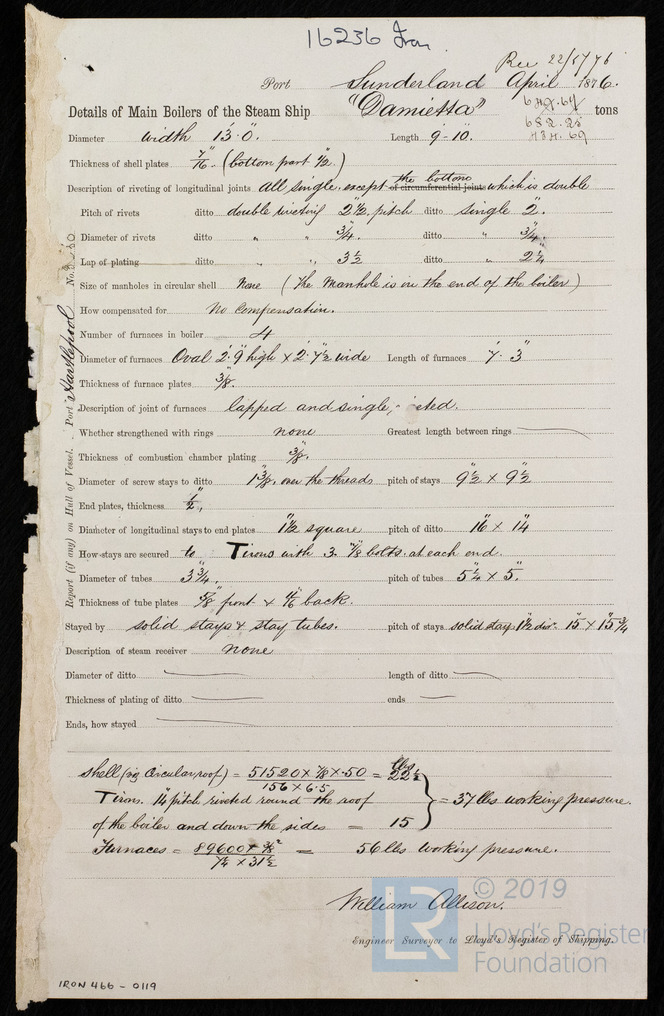 16236 Iron
Rec 22/5/76
Port Sunderland April 1876.
Details of Main Boilers of the Steam Ship "Damietta" tons
682.25
434.69
Diameter width 13'.0". Length 9-10.
Thickness of shell plates 7/16". (bottom part 1/2")
Description of riveting of longitudinal joints all single, except the bottoms of circumferential joints which is double
Pitch of rivets ditto double riveting 2 1/2" pitch ditto single 2".
Diameter of rivets ditto " " 3/4". ditto " 3/4".
Lap of plating ditto " " 3 1/2 ditto " 2 1/4"
Size of manholes in circular shell None (The Manhole is in the end of the boiler)
How compensated for No compensation.
Number of furnaces in boiler 4
Diameter of furnaces Oval 2'.9" high x 2'.7 1/2" wide Length of furnaces 7'. 3"
Thickness of furnace plates 3/8".
Description of joint of furnaces lapped and single
Whether strengthened with rings none Greatest length between rings
Thickness of combustion chamber plating 3/8".
Diameter of screw stays to ditto 1 3/8". over the threads pitch of stays 9 1/2" x 9 1/2"
End plates, thickness 1/2",
Diameter of longitudinal stays to end plates 1 1/2" square pitch of ditto 16" x 14"
How stays are secured to Tirons with 3. 7/8" bolts. at each end.
Diameter of tubes 3 3/4". pitch of tubes 5 1/4" x 5".
Thickness of tube plates 5/8" front & back.
Stayed by solid stays & stay tubes. pitch of stays solid stay 1 1/2" dir. 15" x 15 3/4"
Description of steam receiver none
Diameter of ditto length of ditto
Thickness of plating of ditto ends
Ends, how stayed
Report (if any) on Hull of Vessel. Port Hartlepool No.
shell (viz Circular roof) = 51520 x 7/8 x .50 / 156 x 6.5 = 22 1/2 lbs
Tirons. 14" pitch riveted round the roof = 37 lbs working pressure.
of the boiler and down the sides = 15
Furnaces = 89600 x 3/8² / 7 1/4 x 31 1/2 = 56 lbs working pressure.
William Allison.
Engineer Surveyor to Lloyd's Register of Shipping.
LR
© 2019
Lloyd's Register
Foundation
IRON 466 - 0119